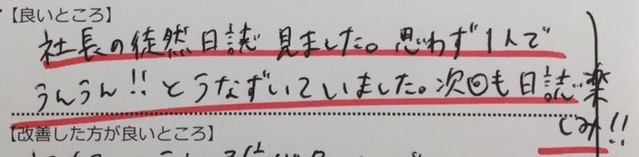 【良いところ】
社長の徒然日誌見ました。思わず1人で
うんうん!!とうなずいていました。次回も日誌楽
しみ!!
【改善した方が良いところ】